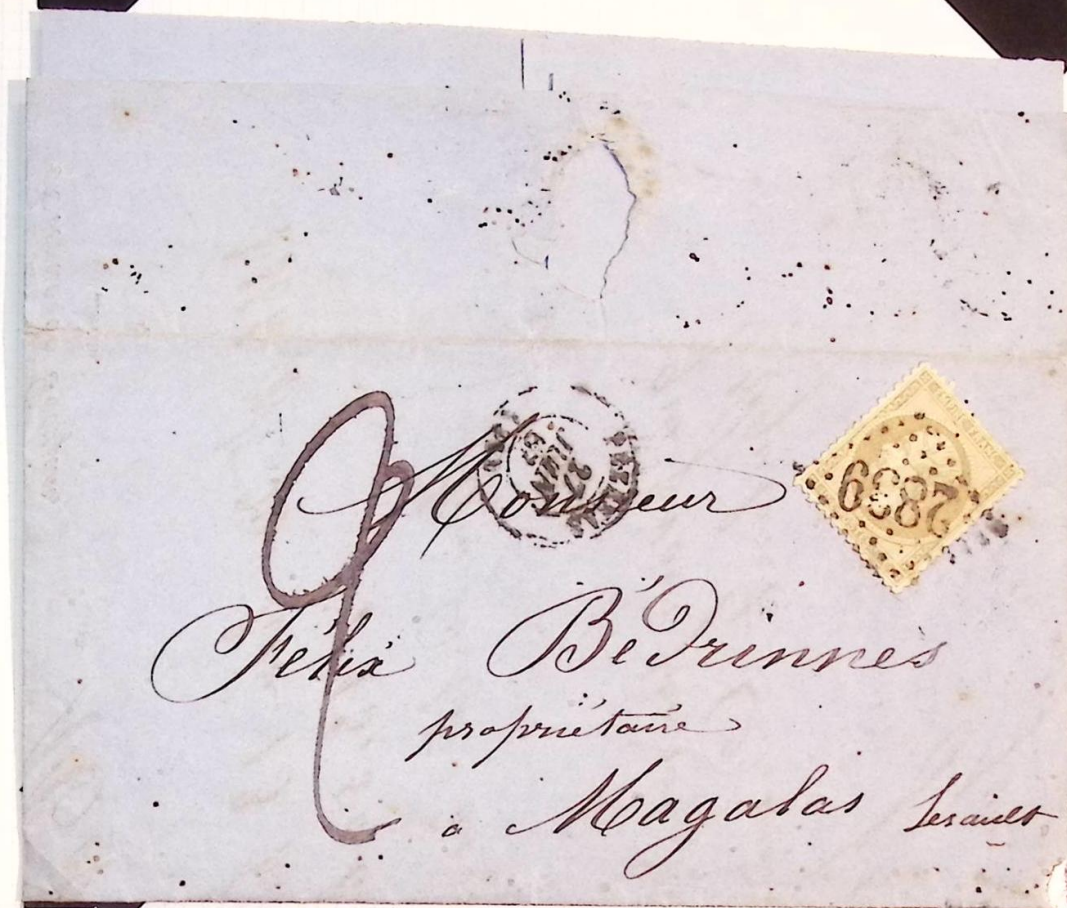 2
PEZENAS
27
JUIN
2839
Monsieur
Félix Bédrinnes
propriétaire
à Magalas herault